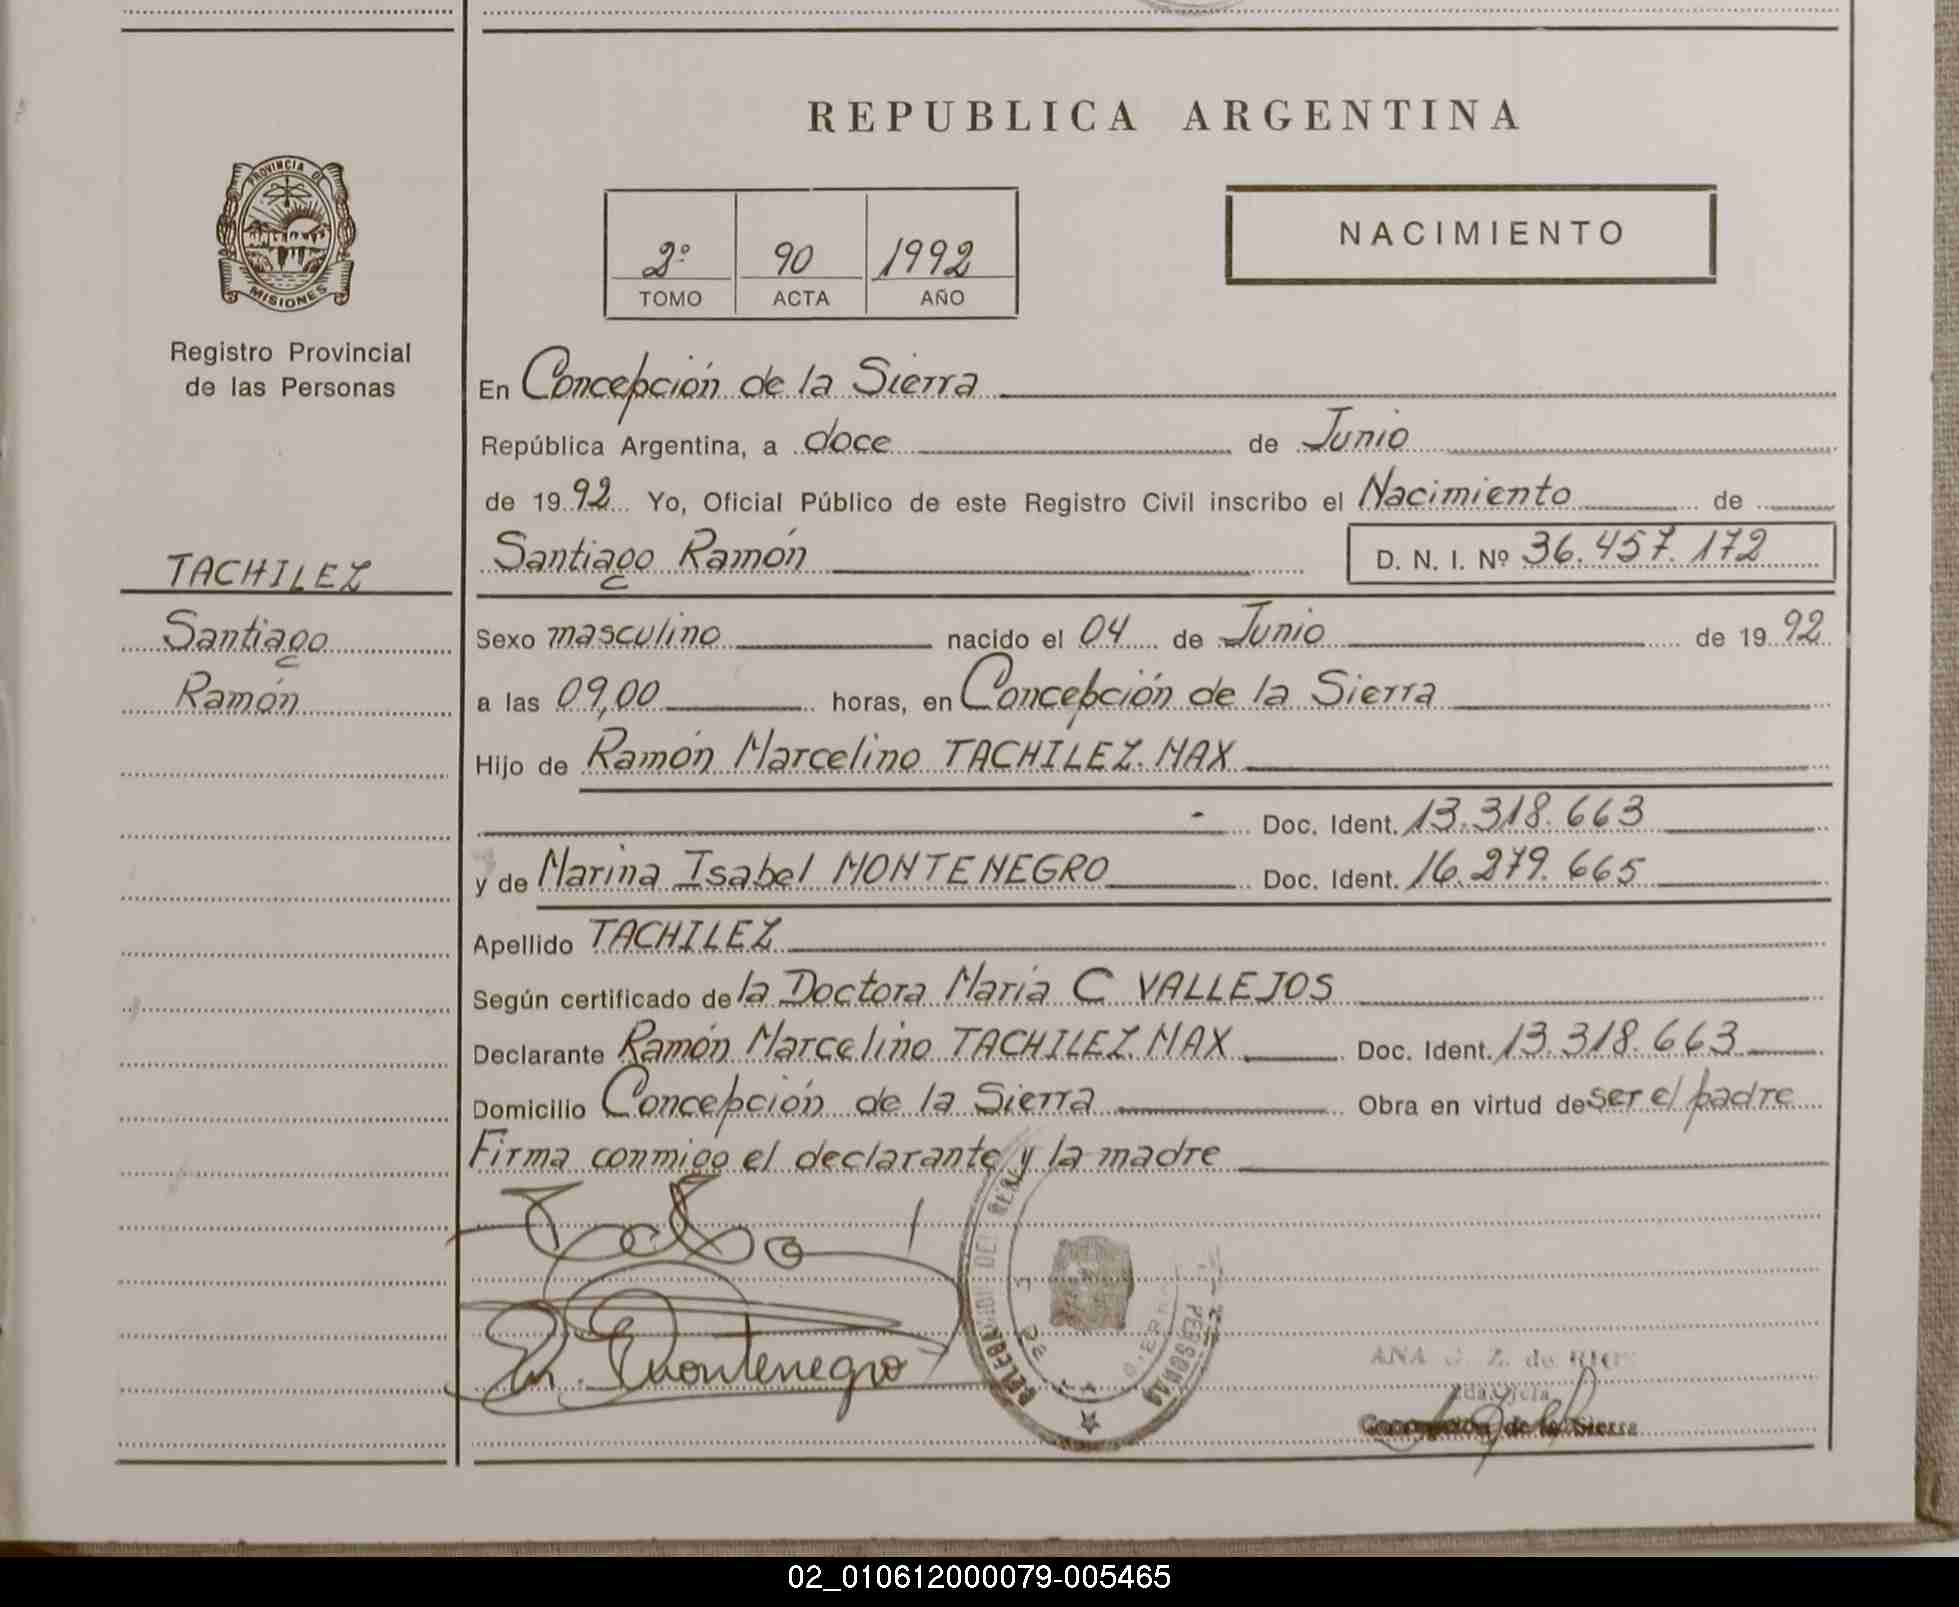 REPUBLICA ARGENTINA
PROVINCIA DE
MISIONES
Registro Provincial
de las Personas
2º 90 1992
TOMO ACTA AÑO
NACIMIENTO
TACHILEZ
Santiago
Ramón
En Concepción de la Sierra
República Argentina, a doce de Junio
de 1992 Yo, Oficial Público de este Registro Civil inscribo el Nacimiento de
Santiago Ramón D. N. I. Nº 36.457.172
Sexo masculino nacido el 04 de Junio de 1992
a las 09,00 horas, en Concepción de la Sierra
Hijo de Ramón Marcelino TACHILEZ. MAX
Doc. Ident. 13.318.663
y de Marina Isabel MONTENEGRO Doc. Ident. 16.279.665
Apellido TACHILEZ
Según certificado de la Doctora María C VALLEJOS
Declarante Ramón Marcelino TACHILEZ. MAX Doc. Ident. 13.318.663
Domicilio Concepción de la Sierra Obra en virtud de ser el padre
Firma conmigo el declarante y la madre
M. Montenegro
PERSONAS
ANA Z. de RIOS
Concepción de la Sierra
02_010612000079-005465